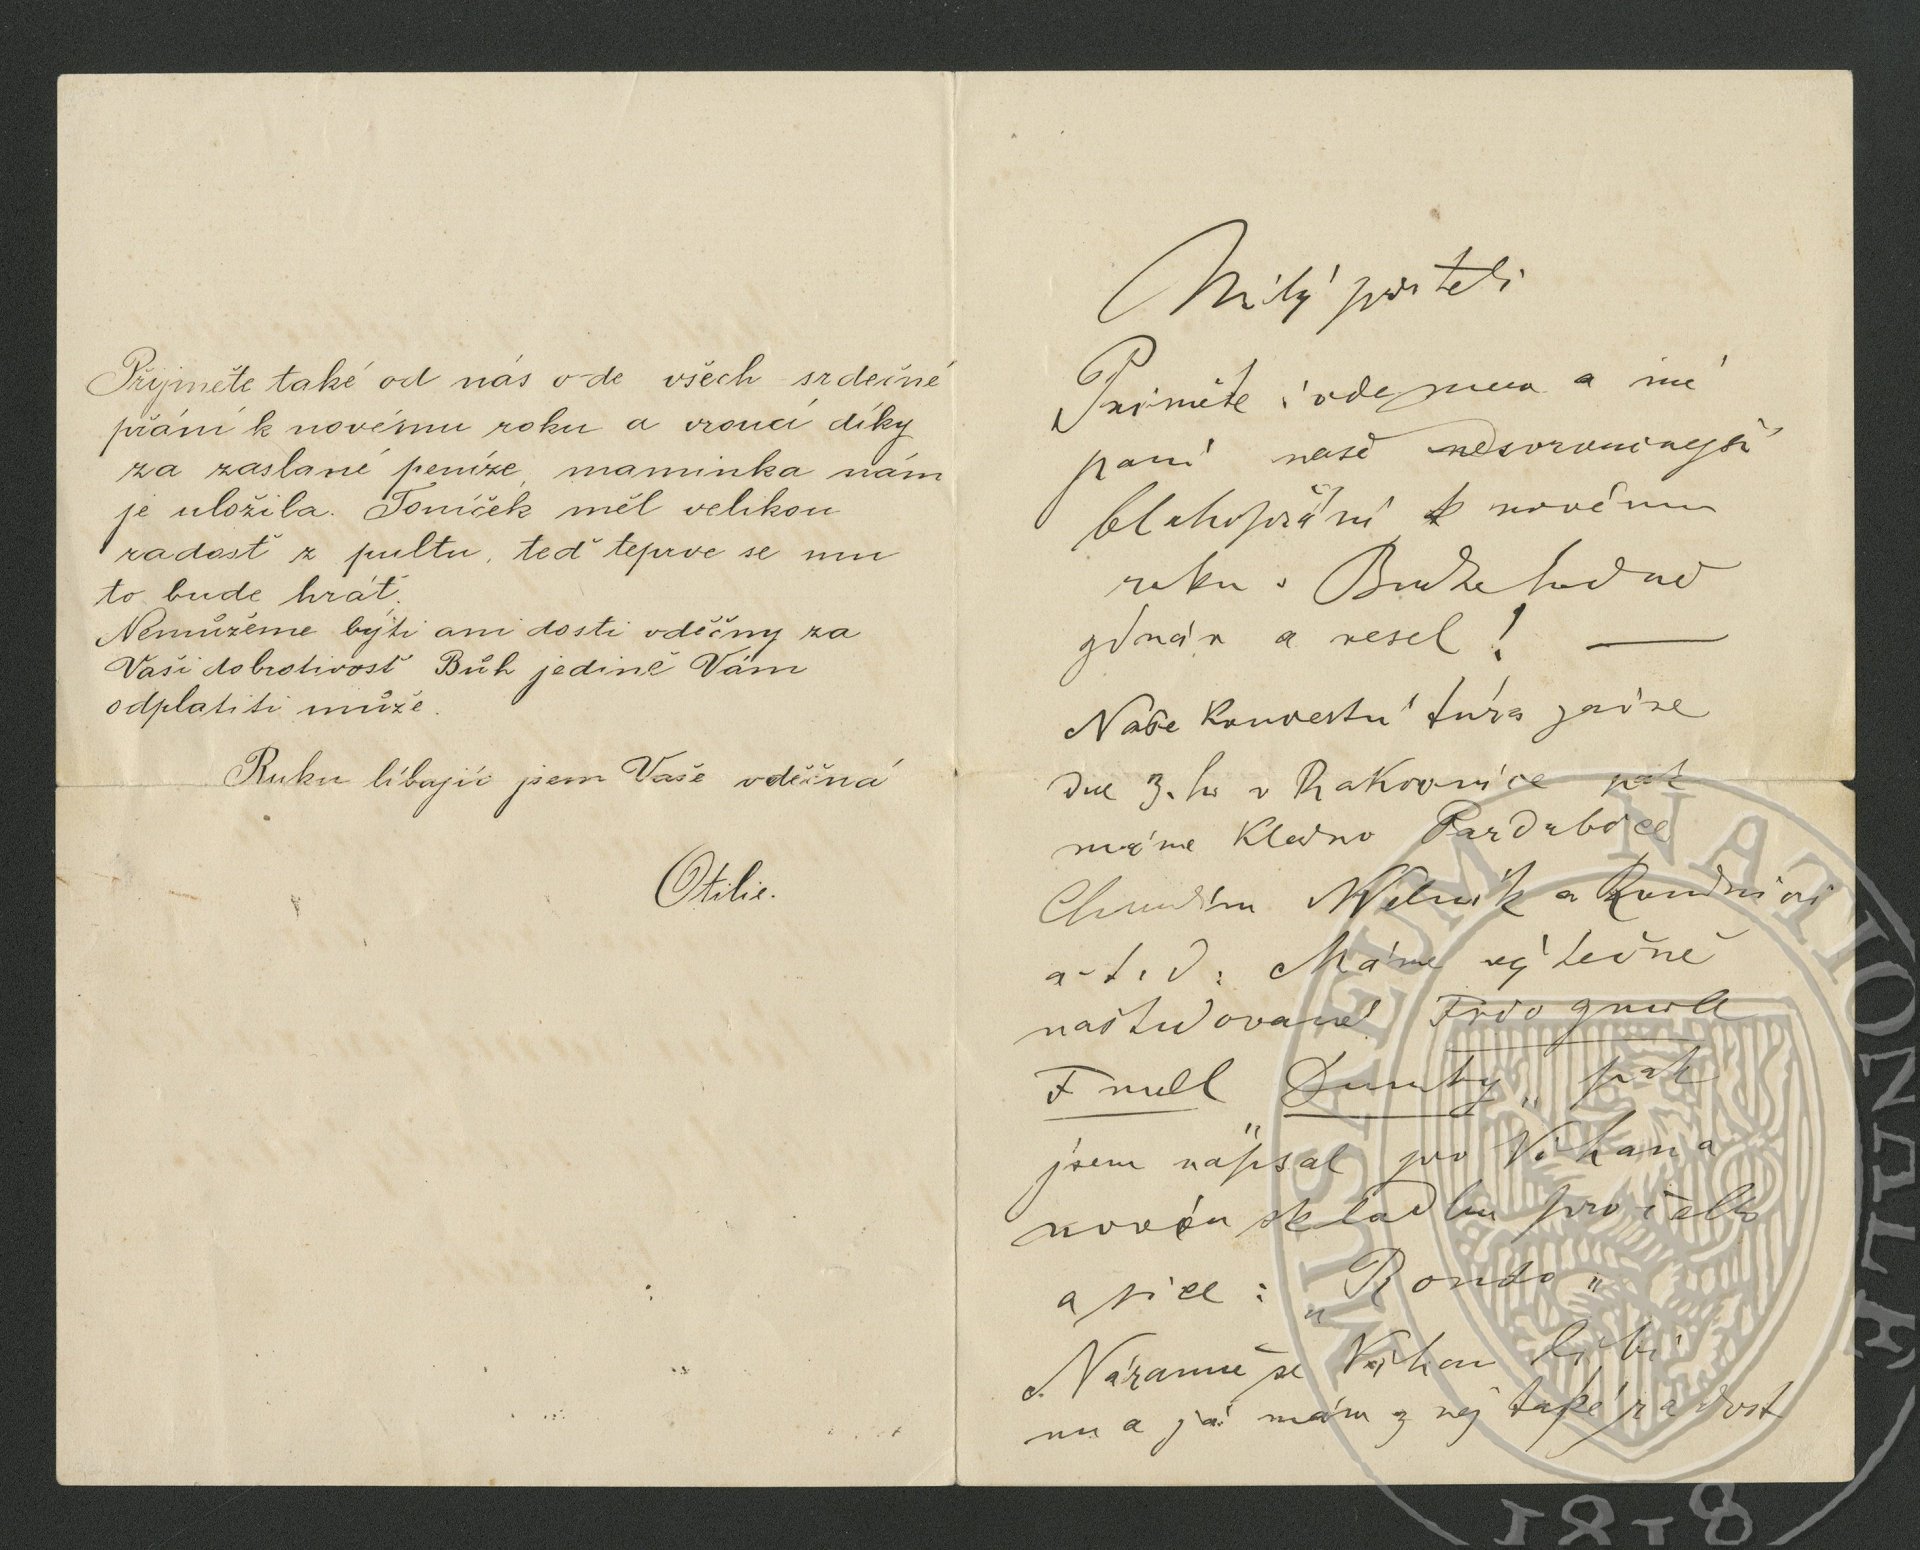 Přijměte také od nás ode všech srdečné
přání k novému roku a vroucí díky
za zaslané peníze, maminka nám
je uložila. Toníček měl velikou
radosť z pultu, teď teprve se mu
to bude hrát.
Nemůžeme býti ani dosti vděčny za
Vaši dobrotivosť Bůh jedině Vám
odplatiti může.
Ruku líbajíc jsem Vaše vděčná
Otilie.
Milý příteli
Přiměte i odemne a mé
paní naše nejsvroucnejší
blahopřání k novému
roku. Buďte hodně
zdráv a vesel! —
Naše koncertní túra začne
dne 3. ho v Rakovníce pak
máme Kladno Pardubice
Chrudim Mělník a Roudnici
a. t. d: Máme výtečně
naštudované Trio g moll
F moll Dumky" pak
jsem napsal pro Vihana
novou skladbu pro čello
a sice: „Rondo"
Náramně se Vihan líbí
mu a já mám z nej také radost
MUSAEUM NATIONALE
1818